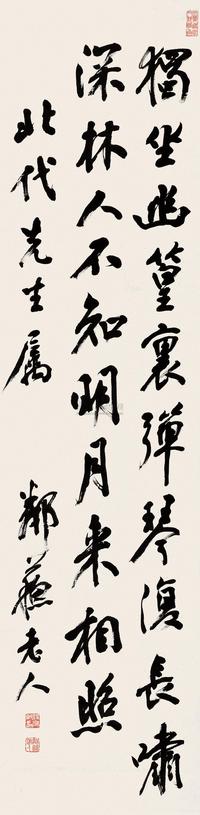 獨坐幽篁裏彈琴復長嘯
深林人不知明月来相照
此代先生属
鄰蘇老人